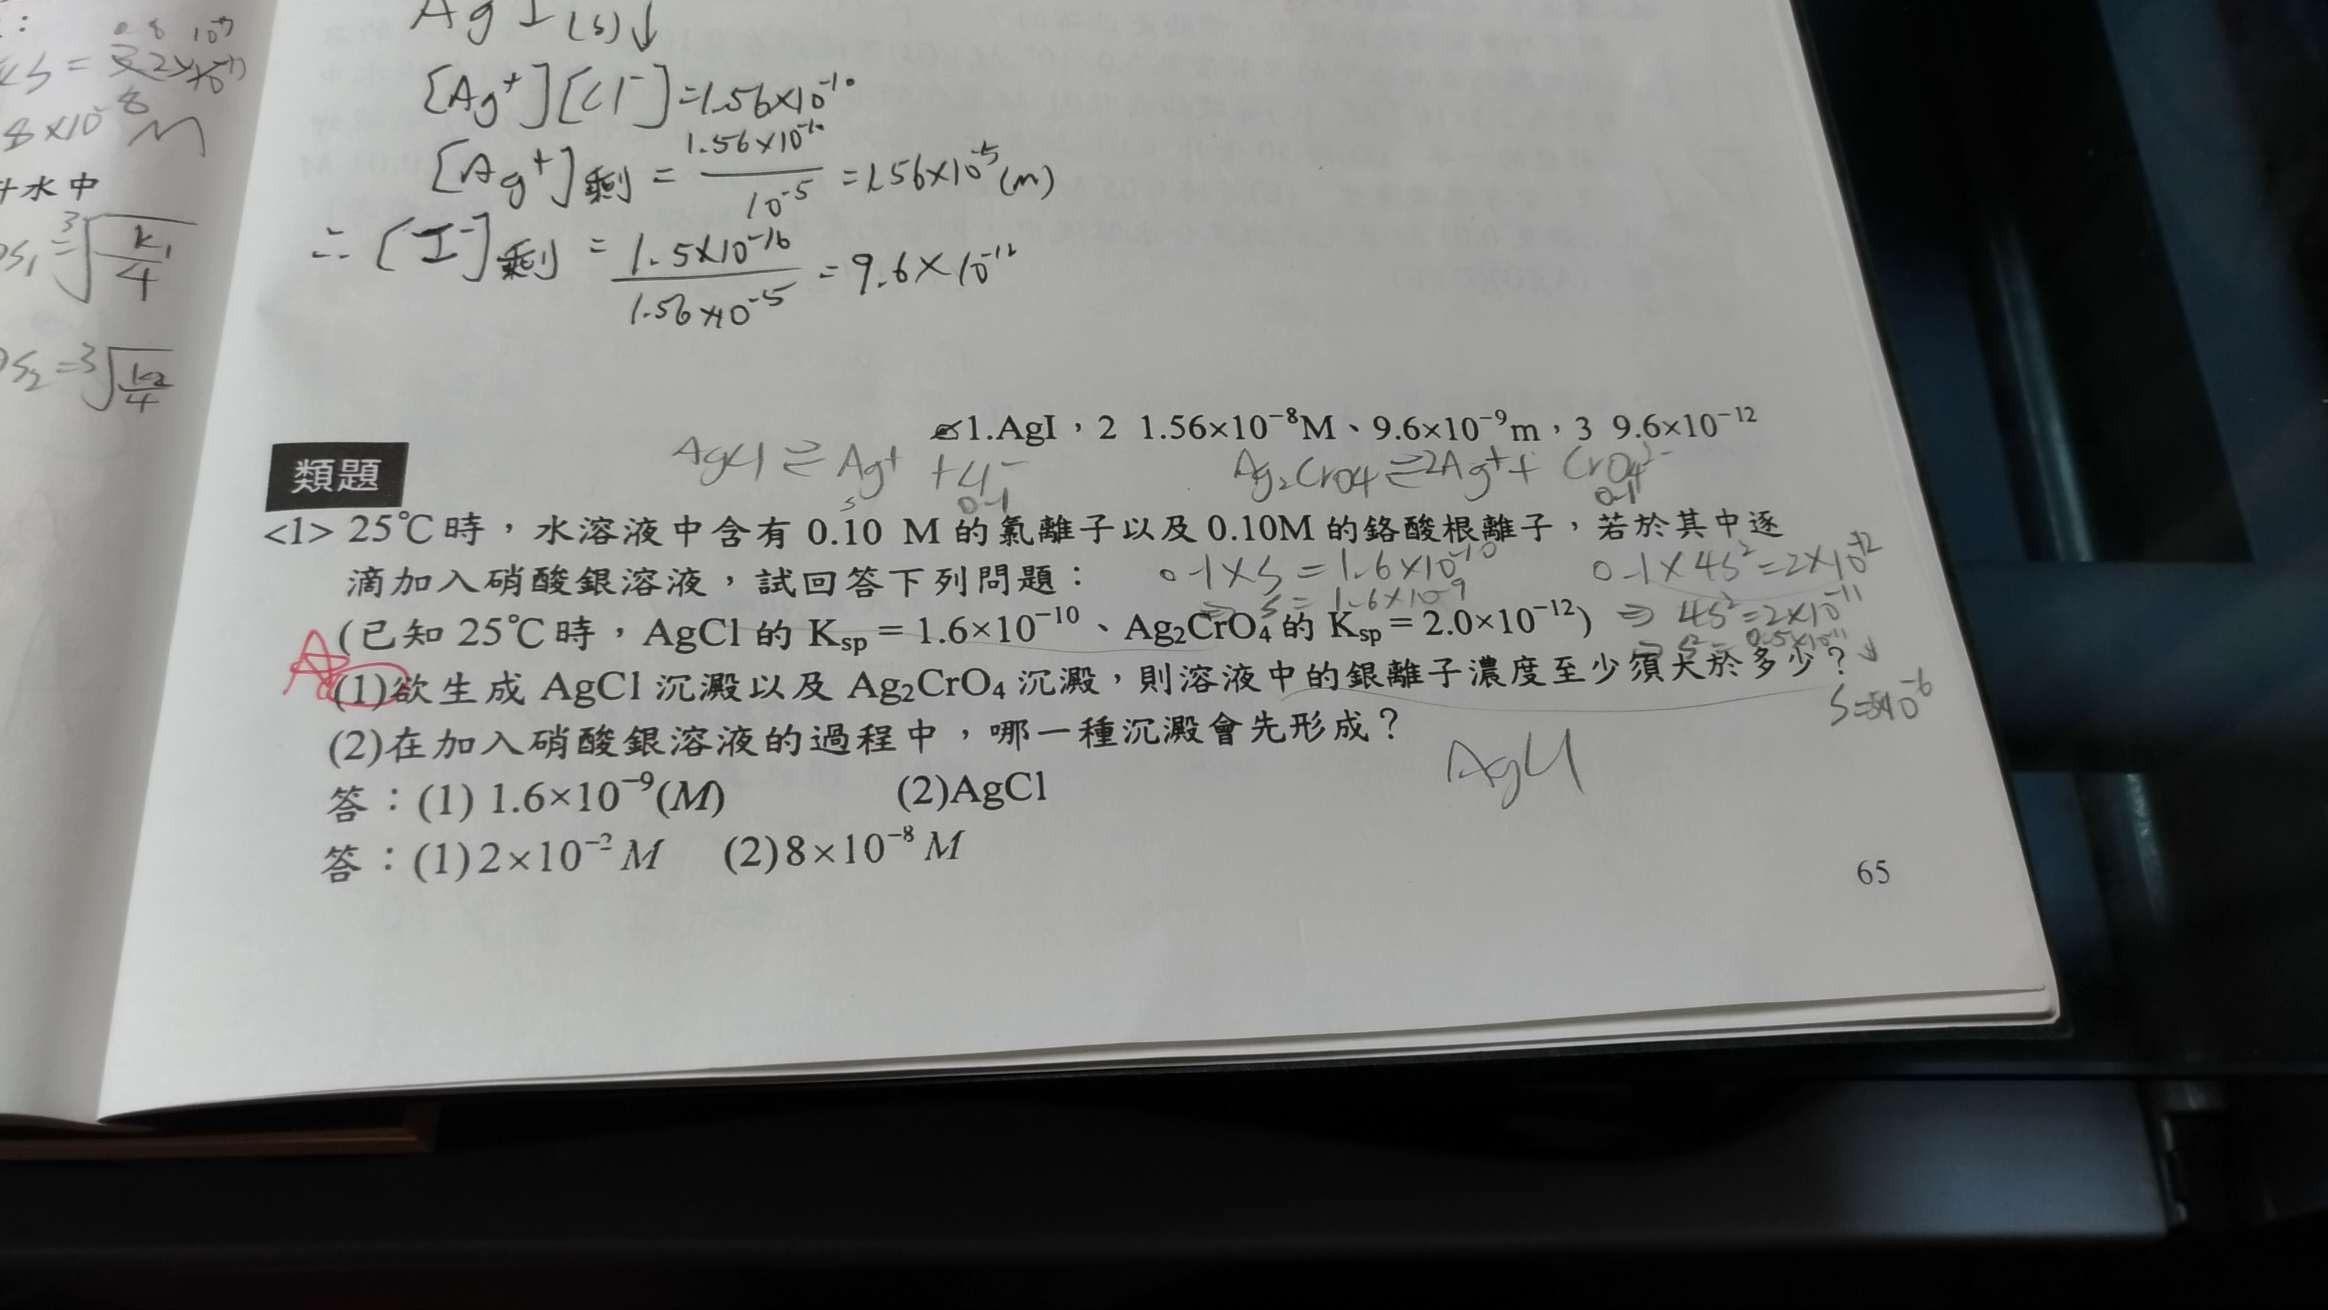 AgI(s)↓
[Ag⁺][Cl⁻]=1.56×10⁻¹⁰
[Ag⁺]剩 = 1.56×10⁻¹⁰ / 10⁻⁵ = 1.56×10⁻⁵(m)
∴ [I⁻]剩 = 1.5×10⁻¹⁶ / 1.56×10⁻⁵ = 9.6×10⁻¹²
8×10⁻⁸ M
升水中
S₁ = ³√(k₁/4)
S₂ = ³√(k₂/4)
1.AgI，2 1.56×10⁻⁸M、9.6×10⁻⁹m，3 9.6×10⁻¹²
AgCl ⇌ Ag⁺ + Cl⁻
s 0.1
Ag₂CrO₄ ⇌ 2Ag⁺ + CrO₄²⁻
0.1
類題
<1> 25℃時，水溶液中含有 0.10 M 的氯離子以及 0.10M 的鉻酸根離子，若於其中逐
滴加入硝酸銀溶液，試回答下列問題：
0.1×S = 1.6×10⁻¹⁰
⇒ S = 1.6×10⁻⁹
0.1×4S²=2×10⁻¹²
⇒ 4S²=2×10⁻¹¹
⇒ S²=0.5×10⁻¹¹
(已知 25℃時，AgCl 的 Ksp = 1.6×10⁻¹⁰、Ag₂CrO₄ 的 Ksp = 2.0×10⁻¹²)
(1)欲生成 AgCl 沉澱以及 Ag₂CrO₄ 沉澱，則溶液中的銀離子濃度至少須大於多少？
(2)在加入硝酸銀溶液的過程中，哪一種沉澱會先形成？
AgCl
答：(1) 1.6×10⁻⁹(M) (2)AgCl
答：(1)2×10⁻² M (2)8×10⁻⁸ M
65